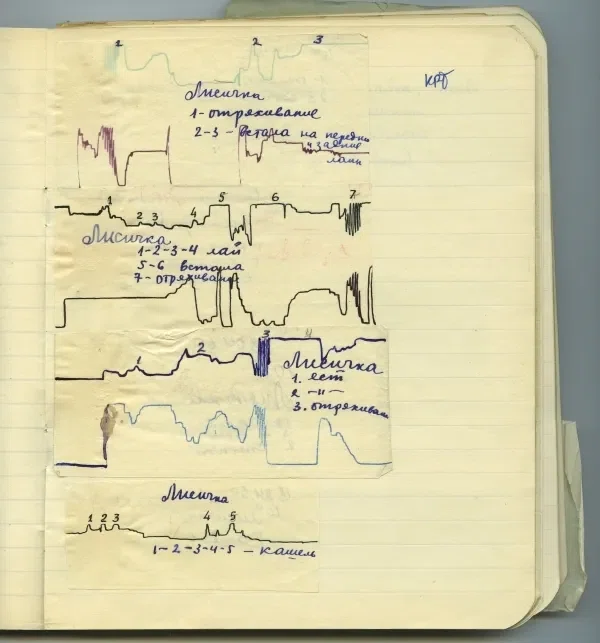 1 2 3
Лисичка
1 - отряхивание
2-3 - встала на передни
и задние
лапы
крб
1 2 3 4 5 6 7
Лисичка
1-2-3-4 лай
5-6 встала
7- отряхивани
1 2 3 4
Лисичка
1. ест
2 -"-
3. отряхиван
Лисичка
1 2 3 4 5
1-2-3-4-5 - кашель